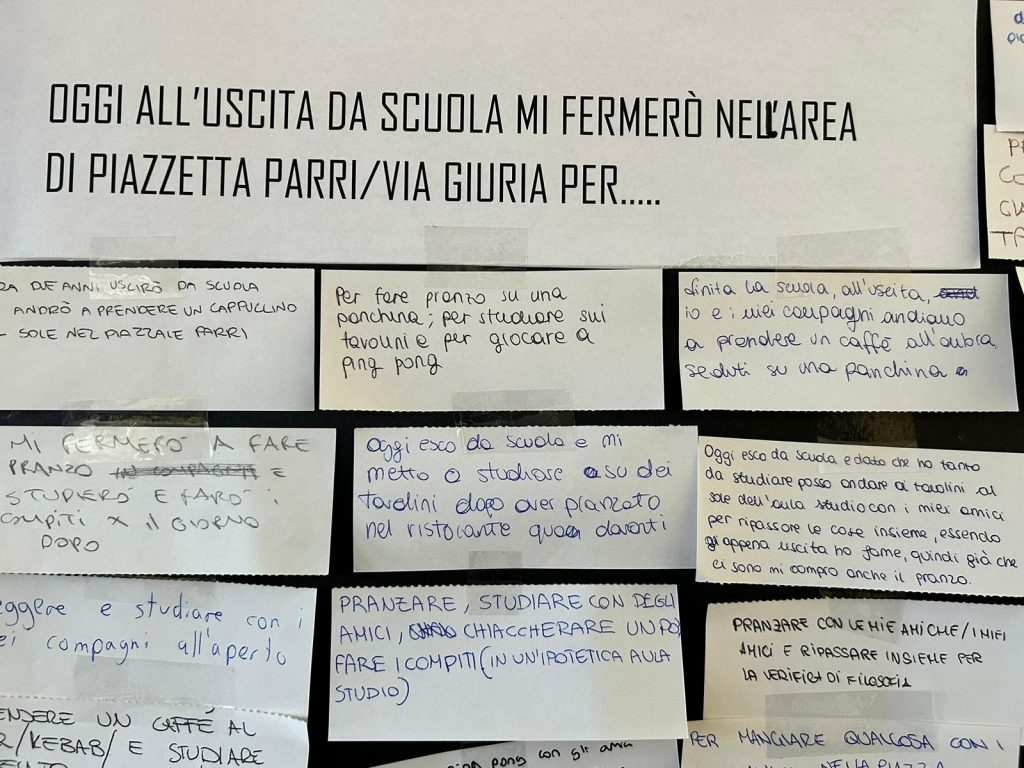 OGGI ALL'USCITA DA SCUOLA MI FERMERÒ NELL'AREA
DI PIAZZETTA PARRI/VIA GIURIA PER.....
RA DUE ANNI USCIRÒ DA SCUOLA
ANDRÒ A PRENDERE UN CAPPUCLINO
SOLE NEL PIAZZALE PARRI
Per fare pranzo su una
panchina; per studiare sui
tavolini e per giocare a
ping pong
finita la scuola, all'uscita,
io e i miei compagni andiamo
a prendere un caffè all'ombra,
seduti su una panchina
MI FERMERÒ A FARE
PRANZO IN COMPAGNIA E
STUDIERÒ E FARÒ I
COMPITI X IL GIORNO
DOPO
Oggi esco da scuola e mi
metto a studiare su dei
tavolini dopo aver pranzato
nel ristorante qua davanti
Oggi esco da scuola e dato che ho tanto
da studiare posso andare ai tavolini al
sole dell'aula studio con i miei amici
per ripassare le cose insieme, essendo
appena uscita ho fame, quindi già che
ci sono mi compro anche il pranzo.
eggere e studiare con i
ei compagni all'aperto
PRANZARE, STUDIARE CON DEGLI
AMICI, CHIACCHERARE UN PO'
FARE I COMPITI (IN UN'IPOTETICA AULA
STUDIO)
PRANZARE CON LE MIE AMICHE/I MIEI
AMICI E RIPASSARE INSIEME PER
LA VERIFICA DI FILOSOFIA
ENDERE UN CAFFÉ AL
R/KEBAB/ E STUDIARE
ping pong con gli amici
PER MANGIARE QUALCOSA CON I
NELLA PIAZZA